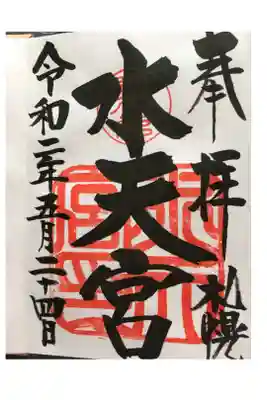 奉拝 札幌
水天宮
令和二年五月二十四日